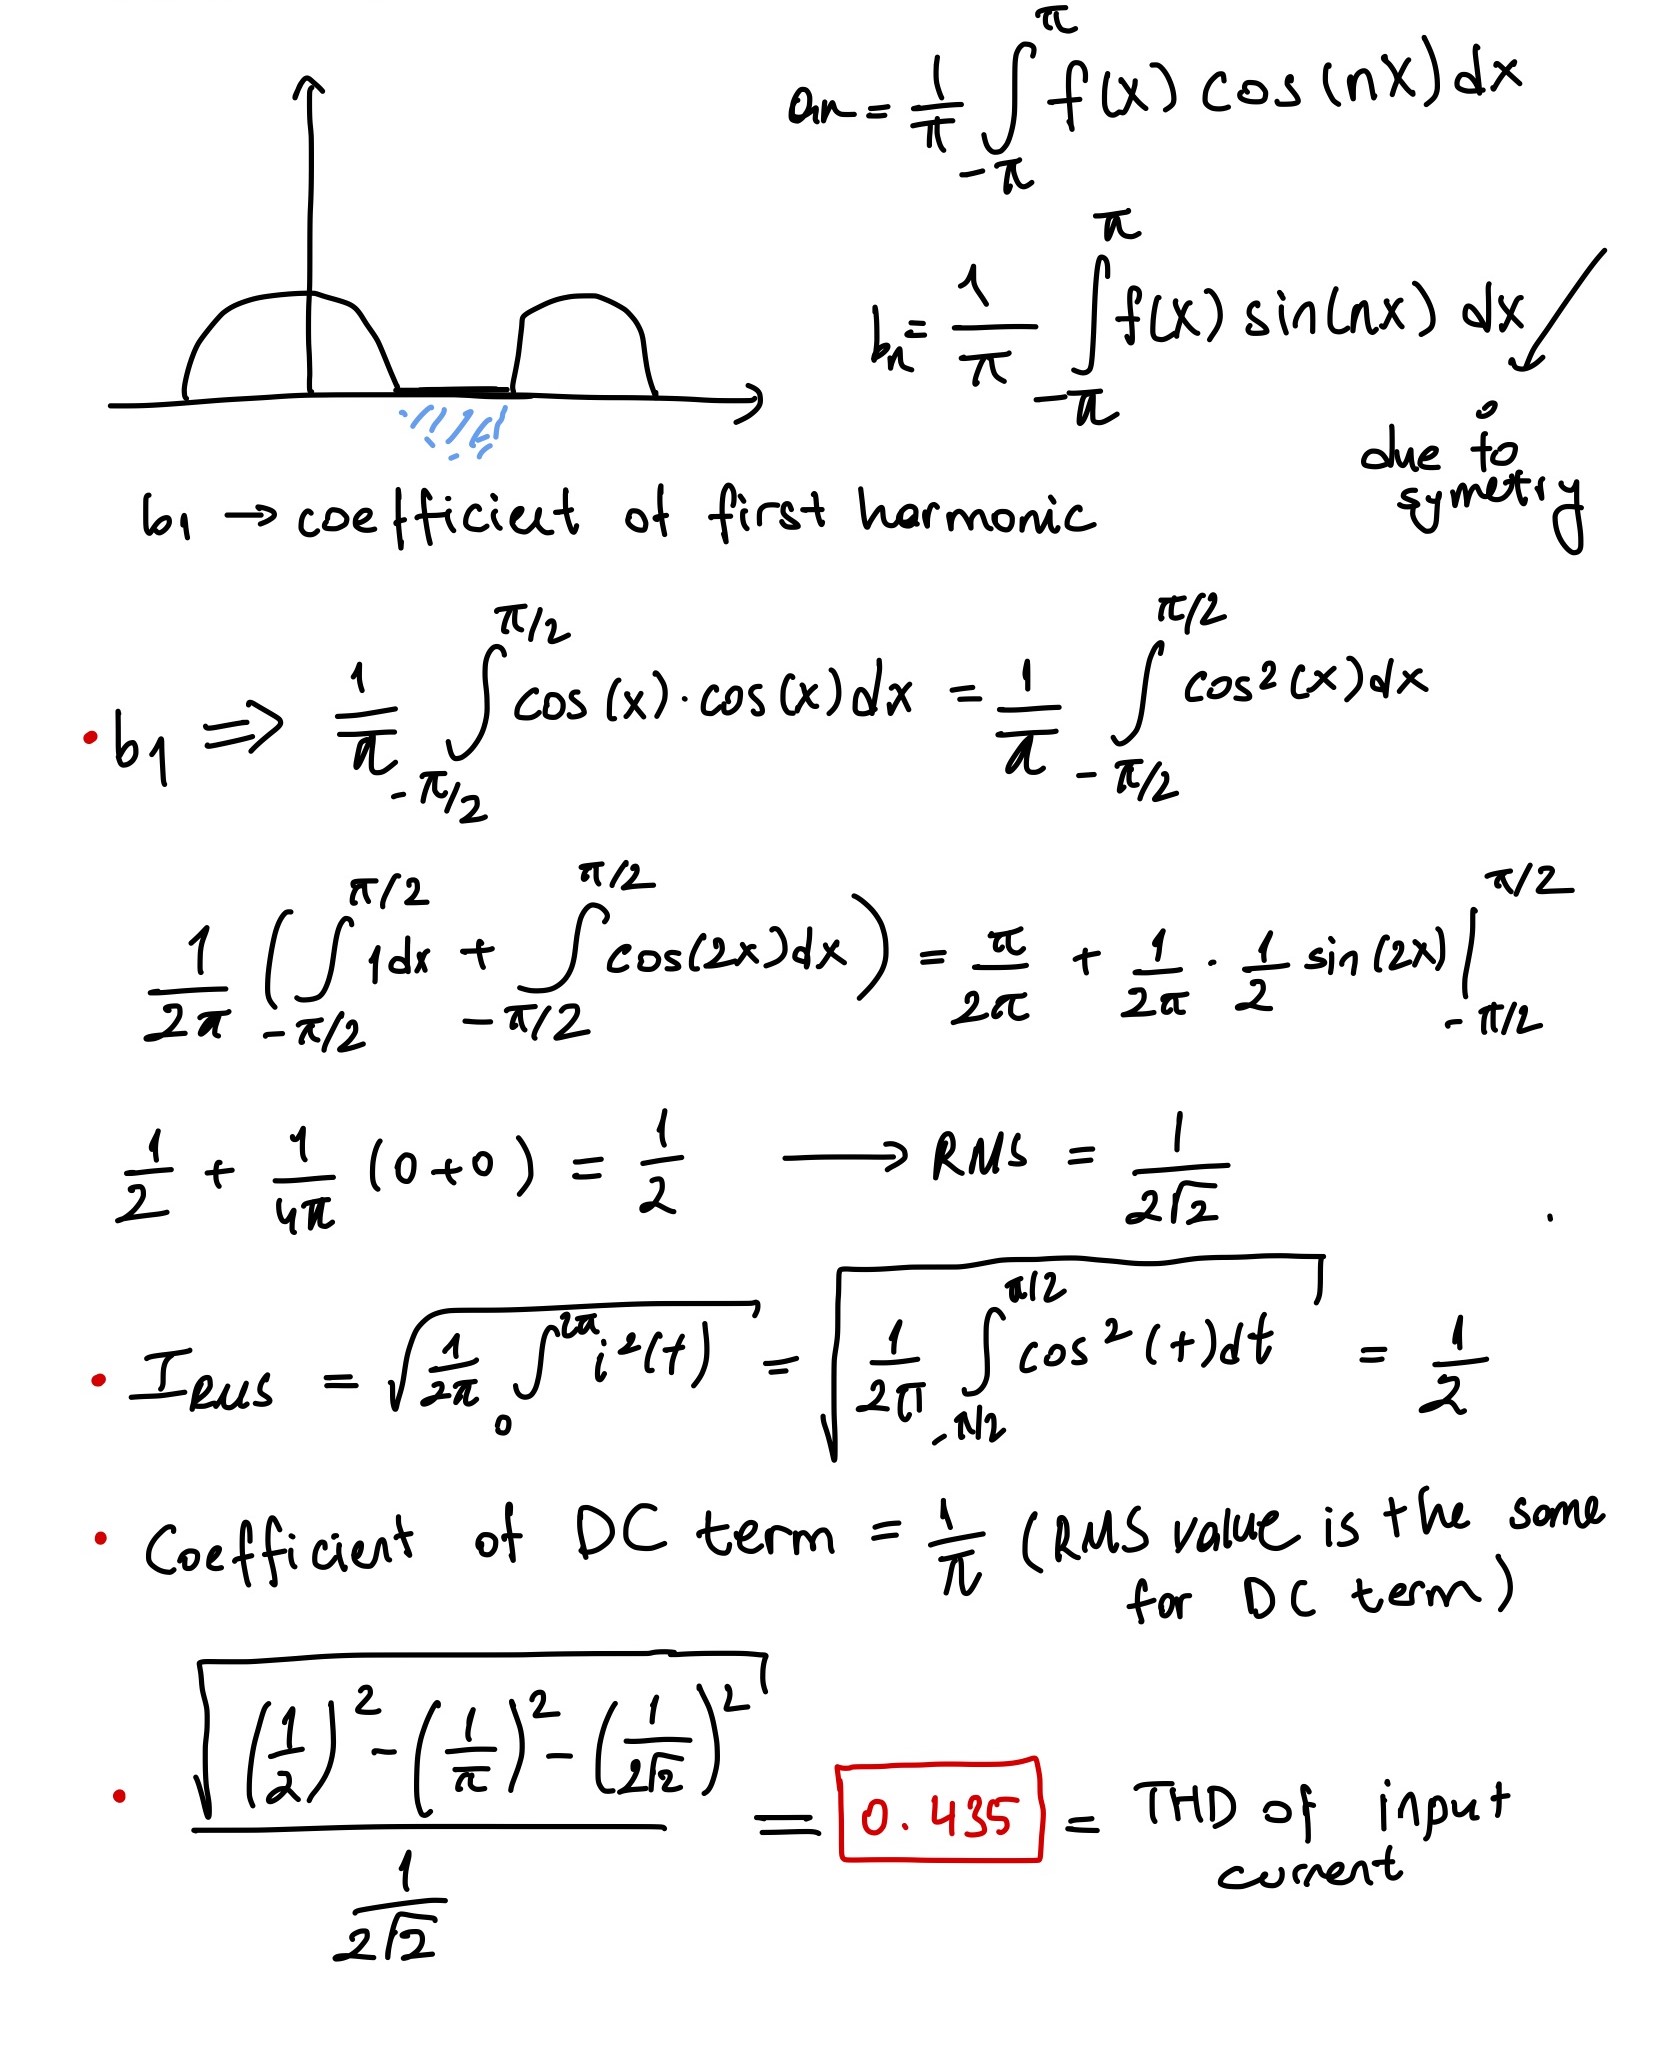 an = 1/π ∫_{-π}^{π} f(x) cos(nx) dx
bn = 1/π ∫_{-π}^{π} f(x) sin(nx) dx
0
due to
symetry
b1 → coefficient of first harmonic
• b1 ⇒ 1/π ∫_{-π/2}^{π/2} cos(x)·cos(x) dx = 1/π ∫_{-π/2}^{π/2} cos²(x) dx
1/2π ( ∫_{-π/2}^{π/2} 1 dx + ∫_{-π/2}^{π/2} cos(2x) dx ) = π/2π + 1/2π · 1/2 sin(2x) |_{-π/2}^{π/2}
1/2 + 1/4π (0+0) = 1/2 → RMS = 1/2√2
• I_RMS = √(1/2π ∫_0^{2π} i²(t)) = √(1/2π ∫_{-π/2}^{π/2} cos²(t) dt) = 1/2
• Coefficient of DC term = 1/π (RMS value is the same
for DC term)
• √((1/2)² - (1/π)² - (1/2√2)²) / (1/2√2) = 0.435 = THD of input
current